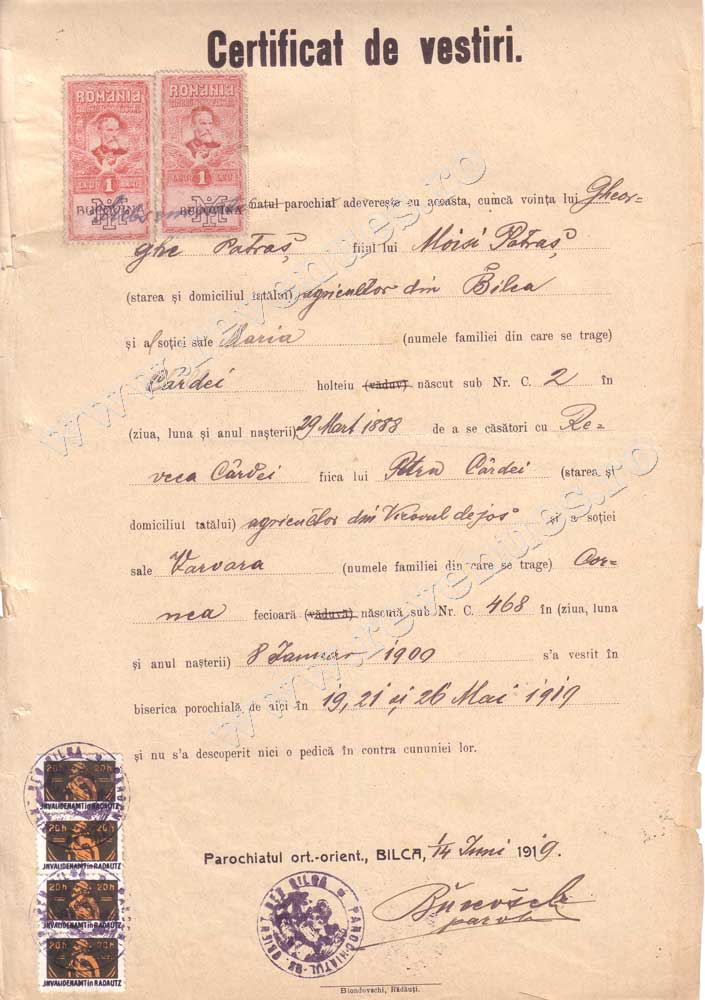 Certificat de vestiri.
ROMÂNIA
ROMÂNIA
1
1
BUCOVINA
BUCOVINA
parochial adeverește cu aceasta, cumcă voința lui Gheor-
ghe Patraș fiiul lui Moisi Patraș
(starea și domiciliul tatălui) agricultor din Bilca
și a soției sale Maria (numele familiei din care se trage)
Cârdei holteiu (văduv) născut sub Nr. C. 2 în
(ziua, luna și anul nașterii) 29 Mart 1888 de a se căsători cu Re-
veca Cârdei fiica lui Petru Cârdei (starea și
domiciliul tatălui) agricultor din Vicovul de jos și a soției
sale Varvara (numele familiei din care se trage) Cor-
nea fecioară (văduvă) născută sub Nr. C. 468 în (ziua, luna
și anul nașterii) 8 Ianuar 1900 s'a vestit în
biserica porochială de aici în 19, 21 și 26 Mai 1919
și nu s'a descoperit nici o pedică în contra cununiei lor.
20h 20h
JNVALIDENAMT in RADAUTZ
20h 20h
JNVALIDENAMT in RADAUTZ
20h 20h
JNVALIDENAMT in RADAUTZ
20h 20h
JNVALIDENAMT in RADAUTZ
Parochiatul ort.-orient., BILCA, 1/14 Iuni 1919.
PAROCHIATUL GR. ORIENT. DIN BILCA
paroh
Blondovschi, Rădăuți.
www.revenues.ro
www.revenues.ro